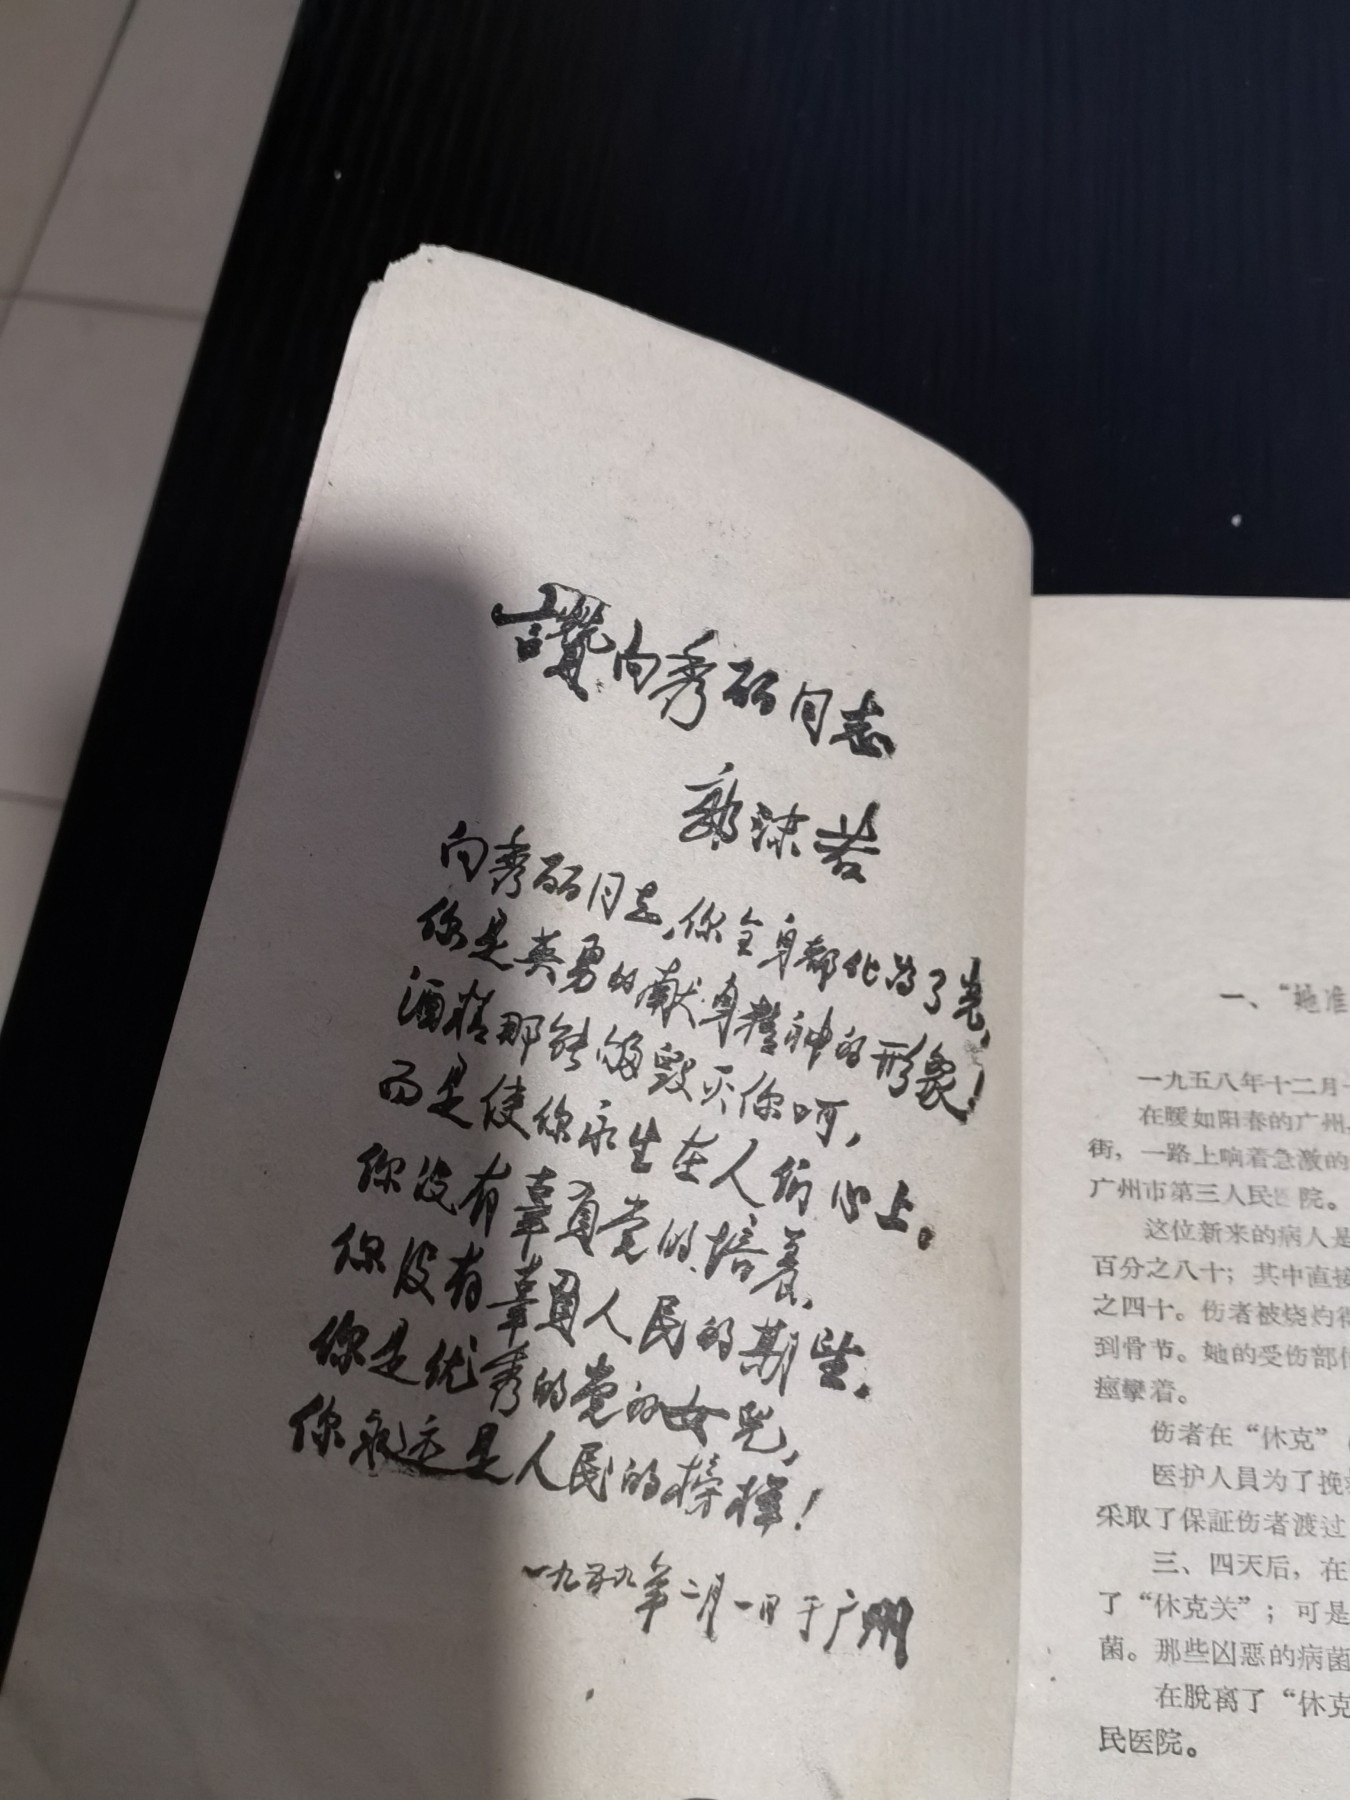 讚向秀丽同志
郭沫若
向秀丽同志，你全身都化为了光，
你是英勇的献身精神的形象！
酒精那能够毁灭你呵，
而是使你永生在人们心上。
你没有辜負党的培养，
你没有辜負人民的期望。
你是优秀的党的女児，
你永远是人民的榜样！
一九五九年二月一日于广州
一、“她准
一九五八年十二月
在暖如阳春的广州
街，一路上响着急激的
广州市第三人民医院。
这位新来的病人是
百分之八十；其中直接
之四十。伤者被烧灼得
到骨节。她的受伤部
痙攣着。
伤者在“休克”
医护人員为了挽
采取了保証伤者渡过
三、四天后，在
了“休克关”；可是
菌。那些凶恶的病菌
在脫离了“休克
民医院。